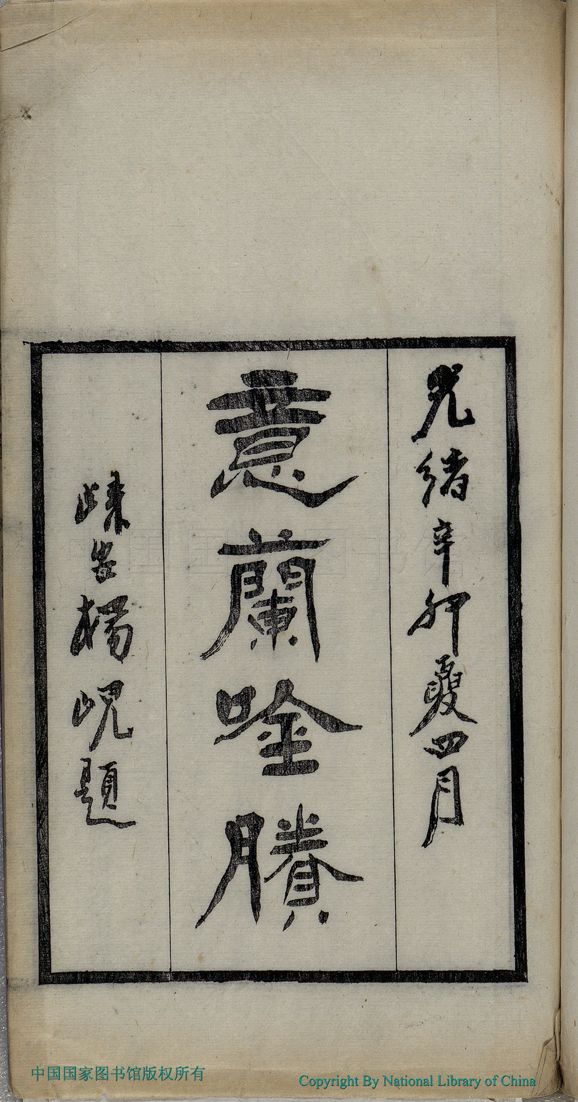 光緒辛卯夏四月
意蘭唫賸
歸安楊峴題
中国国家图书馆版权所有
Copyright By National Library of China